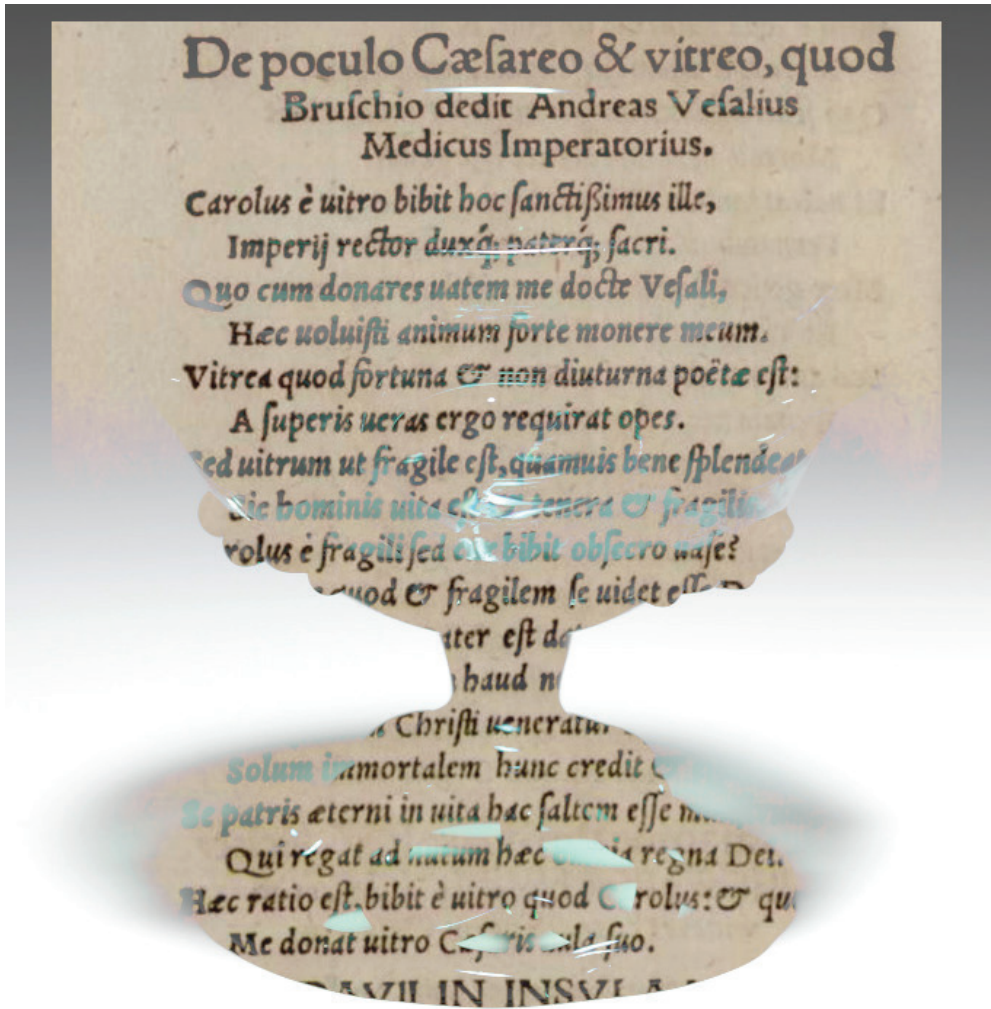 De poculo Cæſareo & vitreo, quod
Bruſchio dedit Andreas Veſalius
Medicus Imperatorius.
Carolus è uitro bibit hoc ſanctißimus ille,
Imperij rector duxq́; paterq́; ſacri.
Quo cum donares uatem me docte Veſali,
Hæc uoluiſti animum forte monere meum.
Vitrea quod fortuna & non diuturna poëtæ eſt:
A ſuperis ueras ergo requirat opes.
Sed uitrum ut fragile eſt, quamuis bene ſplendeat
Sic hominis uita eſt & tenera & fragilis
è fragili ſed cur bibit obſecro uaſe?
quod & fragilem ſe uidet eſſe
eſt
haud
Chriſti ueneratur
Solum immortalem hunc credit
Se patris æterni in uita hac ſaltem eſſe
Qui regat ad nutum hæc omnia regna Dei.
Hæc ratio eſt. bibit è uitro quod Carolus: &
Me donat uitro Cæſaris aula ſuo.
IN INSVLA